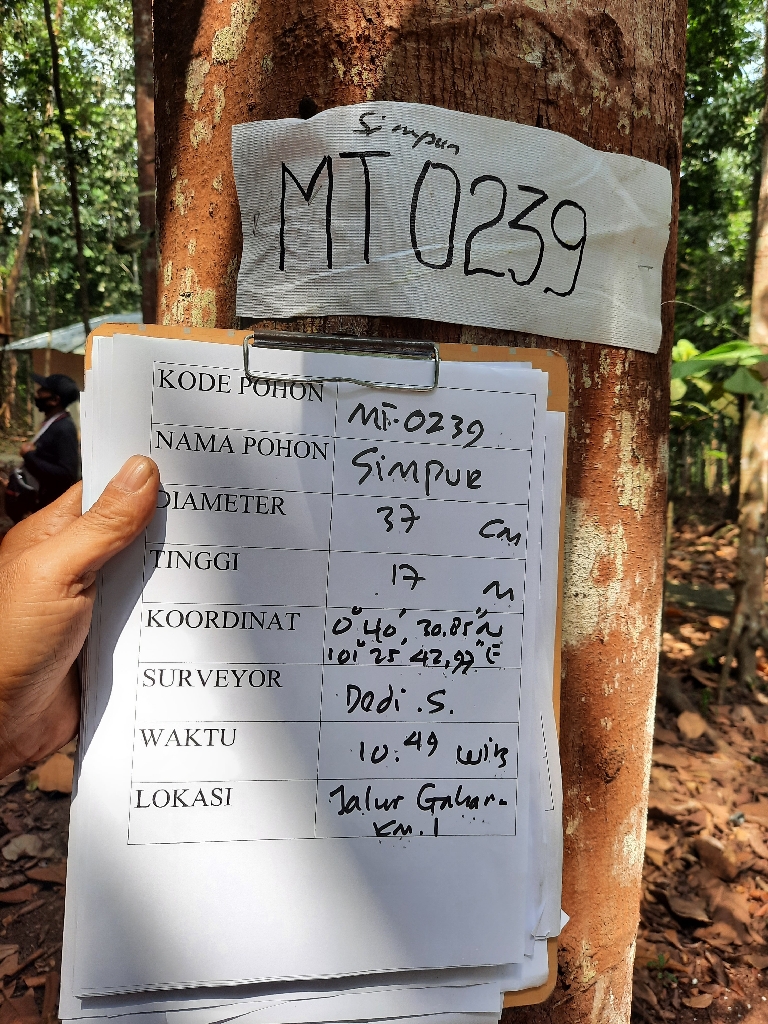 Simpur
MT 0239
KODE POHON MT-0239
NAMA POHON Simpur
DIAMETER 37 cm
TINGGI 17 m
KOORDINAT 0° 40' 30.85" N
101° 25' 42,97" E
SURVEYOR Dodi .S.
WAKTU 10.49 WIB
LOKASI Jalur Gahar-
Km. 1